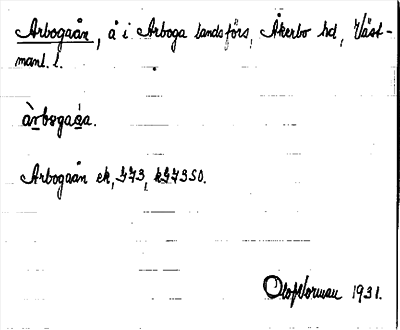 Arbogaån, å i Arboga landsförs, Åkerbo hd, Väst-
manl. l.
àrbogaåa.
Arbogaån ek, 273,
Olof Norman 1931.